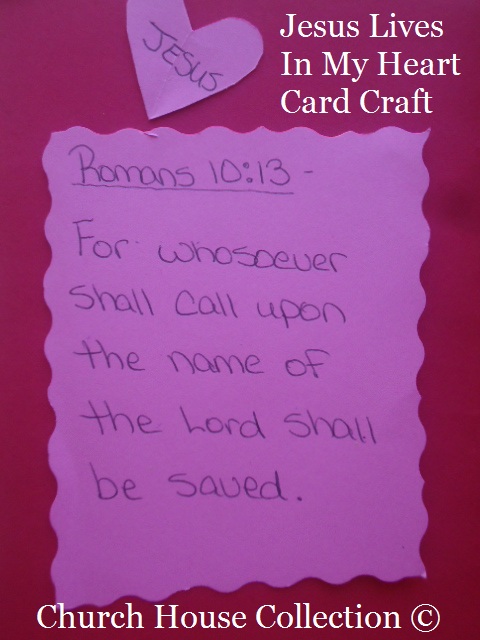 JESUS
Jesus Lives
In My Heart
Card Craft
Romans 10:13 -
For whosoever
shall call upon
the name of
the Lord shall
be saved.
Church House Collection ©